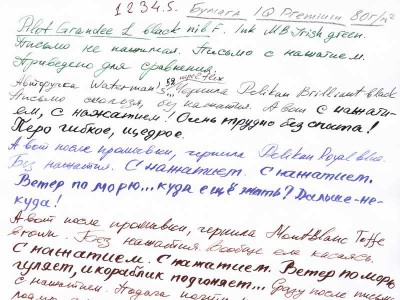 1234.5. Бумага IQ Premium 80г/м²
Pilot Grandee L black nib F. Ink MB Irish green.
Письмо не нажимая. Письмо с нажатием.
Приведено для сравнения.
Авторучка Waterman's 58 чернила Pelikan Brilliant-black
Письмо скользя, без нажатия. А вот с нажати-
ем, с нажатием! Очень трудно без опыта!
Перо гибкое, щедрое.
А вот после промывки, чернила Pelikan Royal blue.
Без нажатия. С нажатием. С нажатием.
Ветер по морю... куда ещё жать? Дальше-не-
куда!
А вот после промывки, чернила MontBlanc Toffe
brown. Без нажатия вообще еле касаясь.
С нажатием. С нажатием. Ветер по морю
гуляет, и кораблик подгоняет... Сразу после письма
с нажатием. Подача